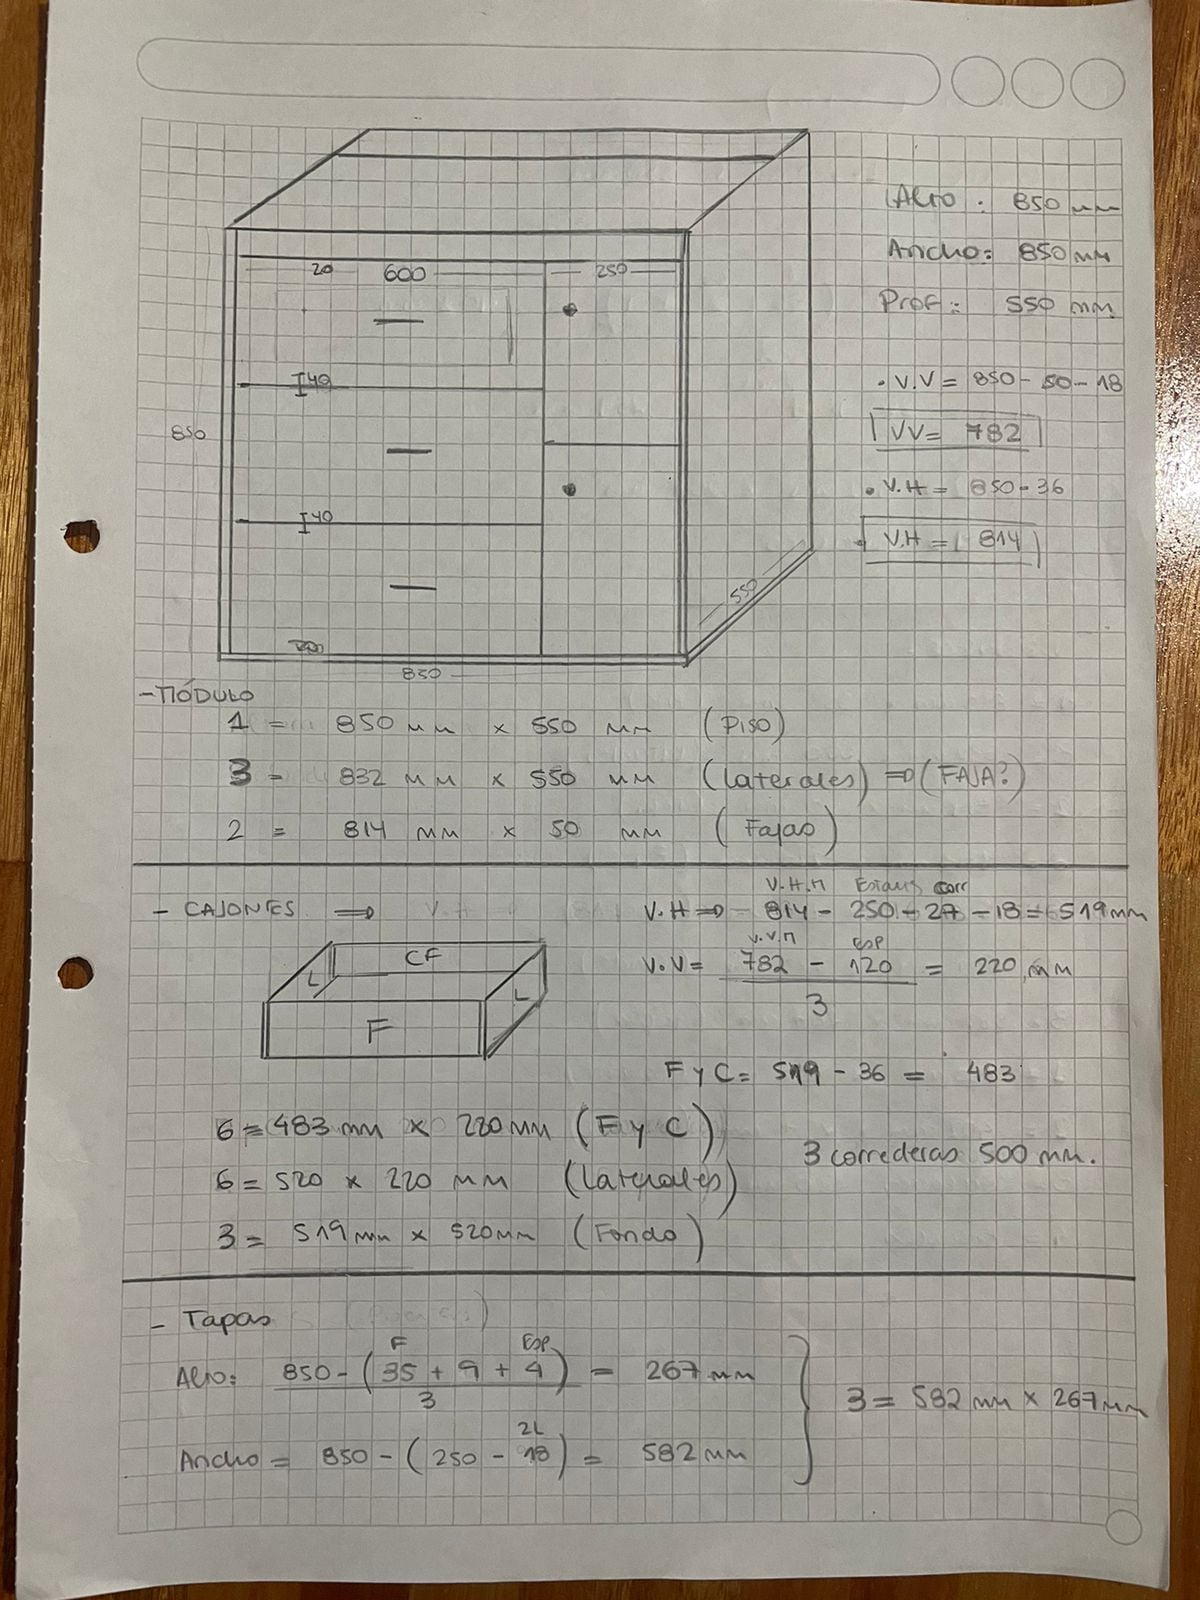 Alto : 850 mm
Ancho: 850 mm
Prof: 550 mm.
20 600 250
I40
850
I40
550
850
• V.V = 850 - 50 - 18
VV = 782
• V.H = 850 - 36
• V.H = 814
- MÓDULO
1 = 850 mm x 550 mm (Piso)
3 = 832 mm x 550 mm (Laterales) => (FAJA?)
2 = 814 mm x 50 mm (Fajas)
- CAJONES => V.H
V.H.M Estans corr
V.H => 814 - 250 - 27 - 18 = 519 mm
V.V.M ESP
V.V = 782 - 120 = 220 mm
3
CF
L L
F
F y C = 519 - 36 = 483
6 = 483 mm x 220 mm (F y C)
3 correderas 500 mm.
6 = 520 x 220 mm (Laterales)
3 = 519 mm x 520 mm (Fondo)
- Tapas
F ESP
Alto: 850 - (35 + 9 + 4) = 267 mm
3
3 = 582 mm x 267 mm
2L
Ancho = 850 - (250 - 18) = 582 mm